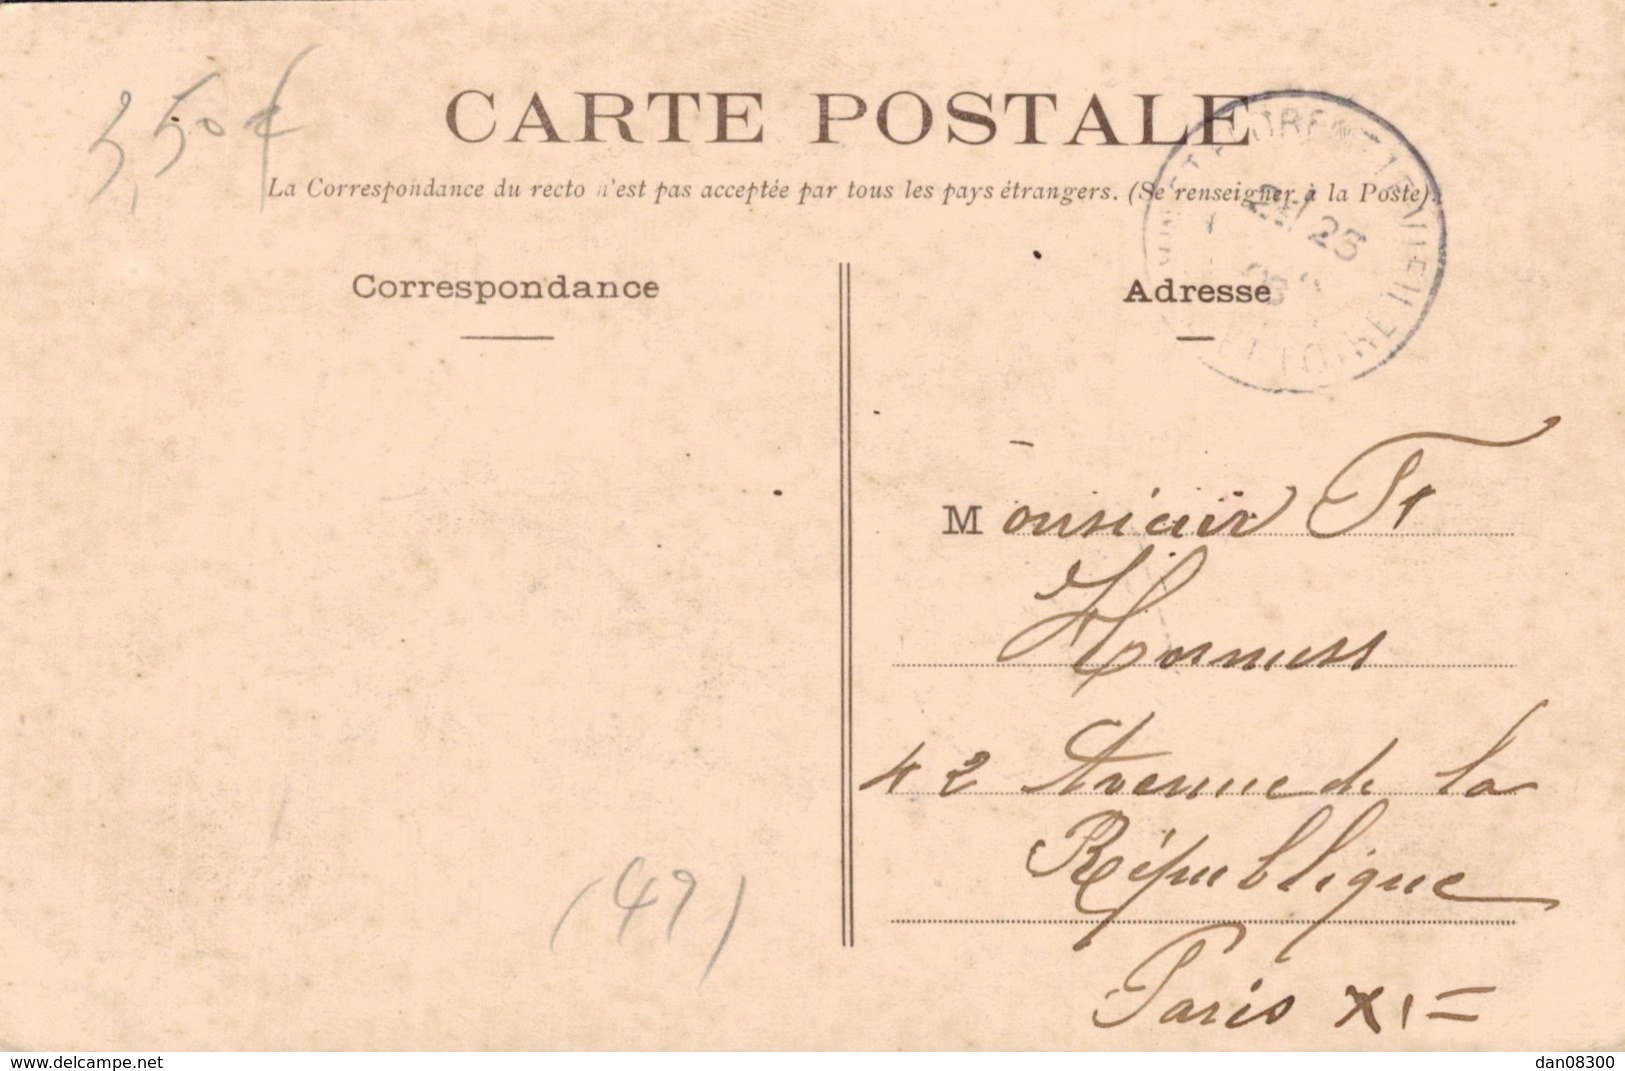 3,50€
CARTE POSTALE
La Correspondance du recto n'est pas acceptée par tous les pays étrangers. (Se renseigner à la Poste)
Correspondance
Adresse
25
ET LOIRE
Monsieur
42 Avenue de la
République
Paris XIe
(49)
www.delcampe.net
dan08300